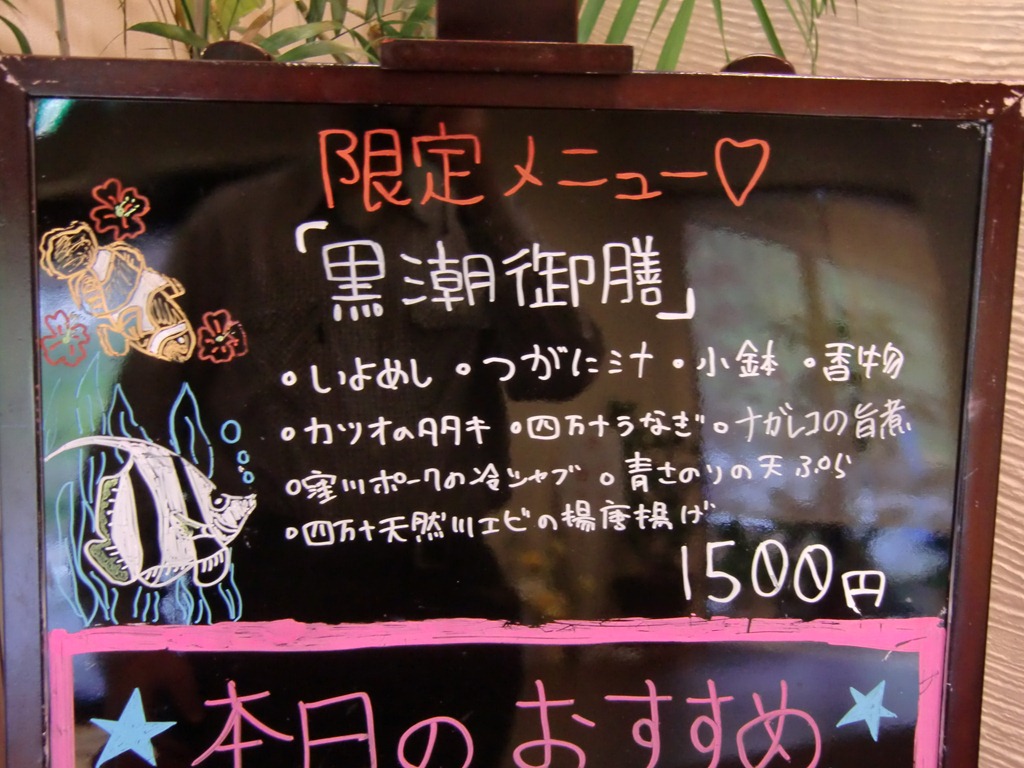 限定メニュー♡
「黒潮御膳」
・いよめし ・つがに汁 ・小鉢 ・香物
・カツオのタタキ ・四万十うなぎ ・ナガレコの旨煮
・窪川ポークの冷シャブ ・青さのりの天ぷら
・四万十天然川エビの揚唐揚げ
1500円
本日のおすすめ